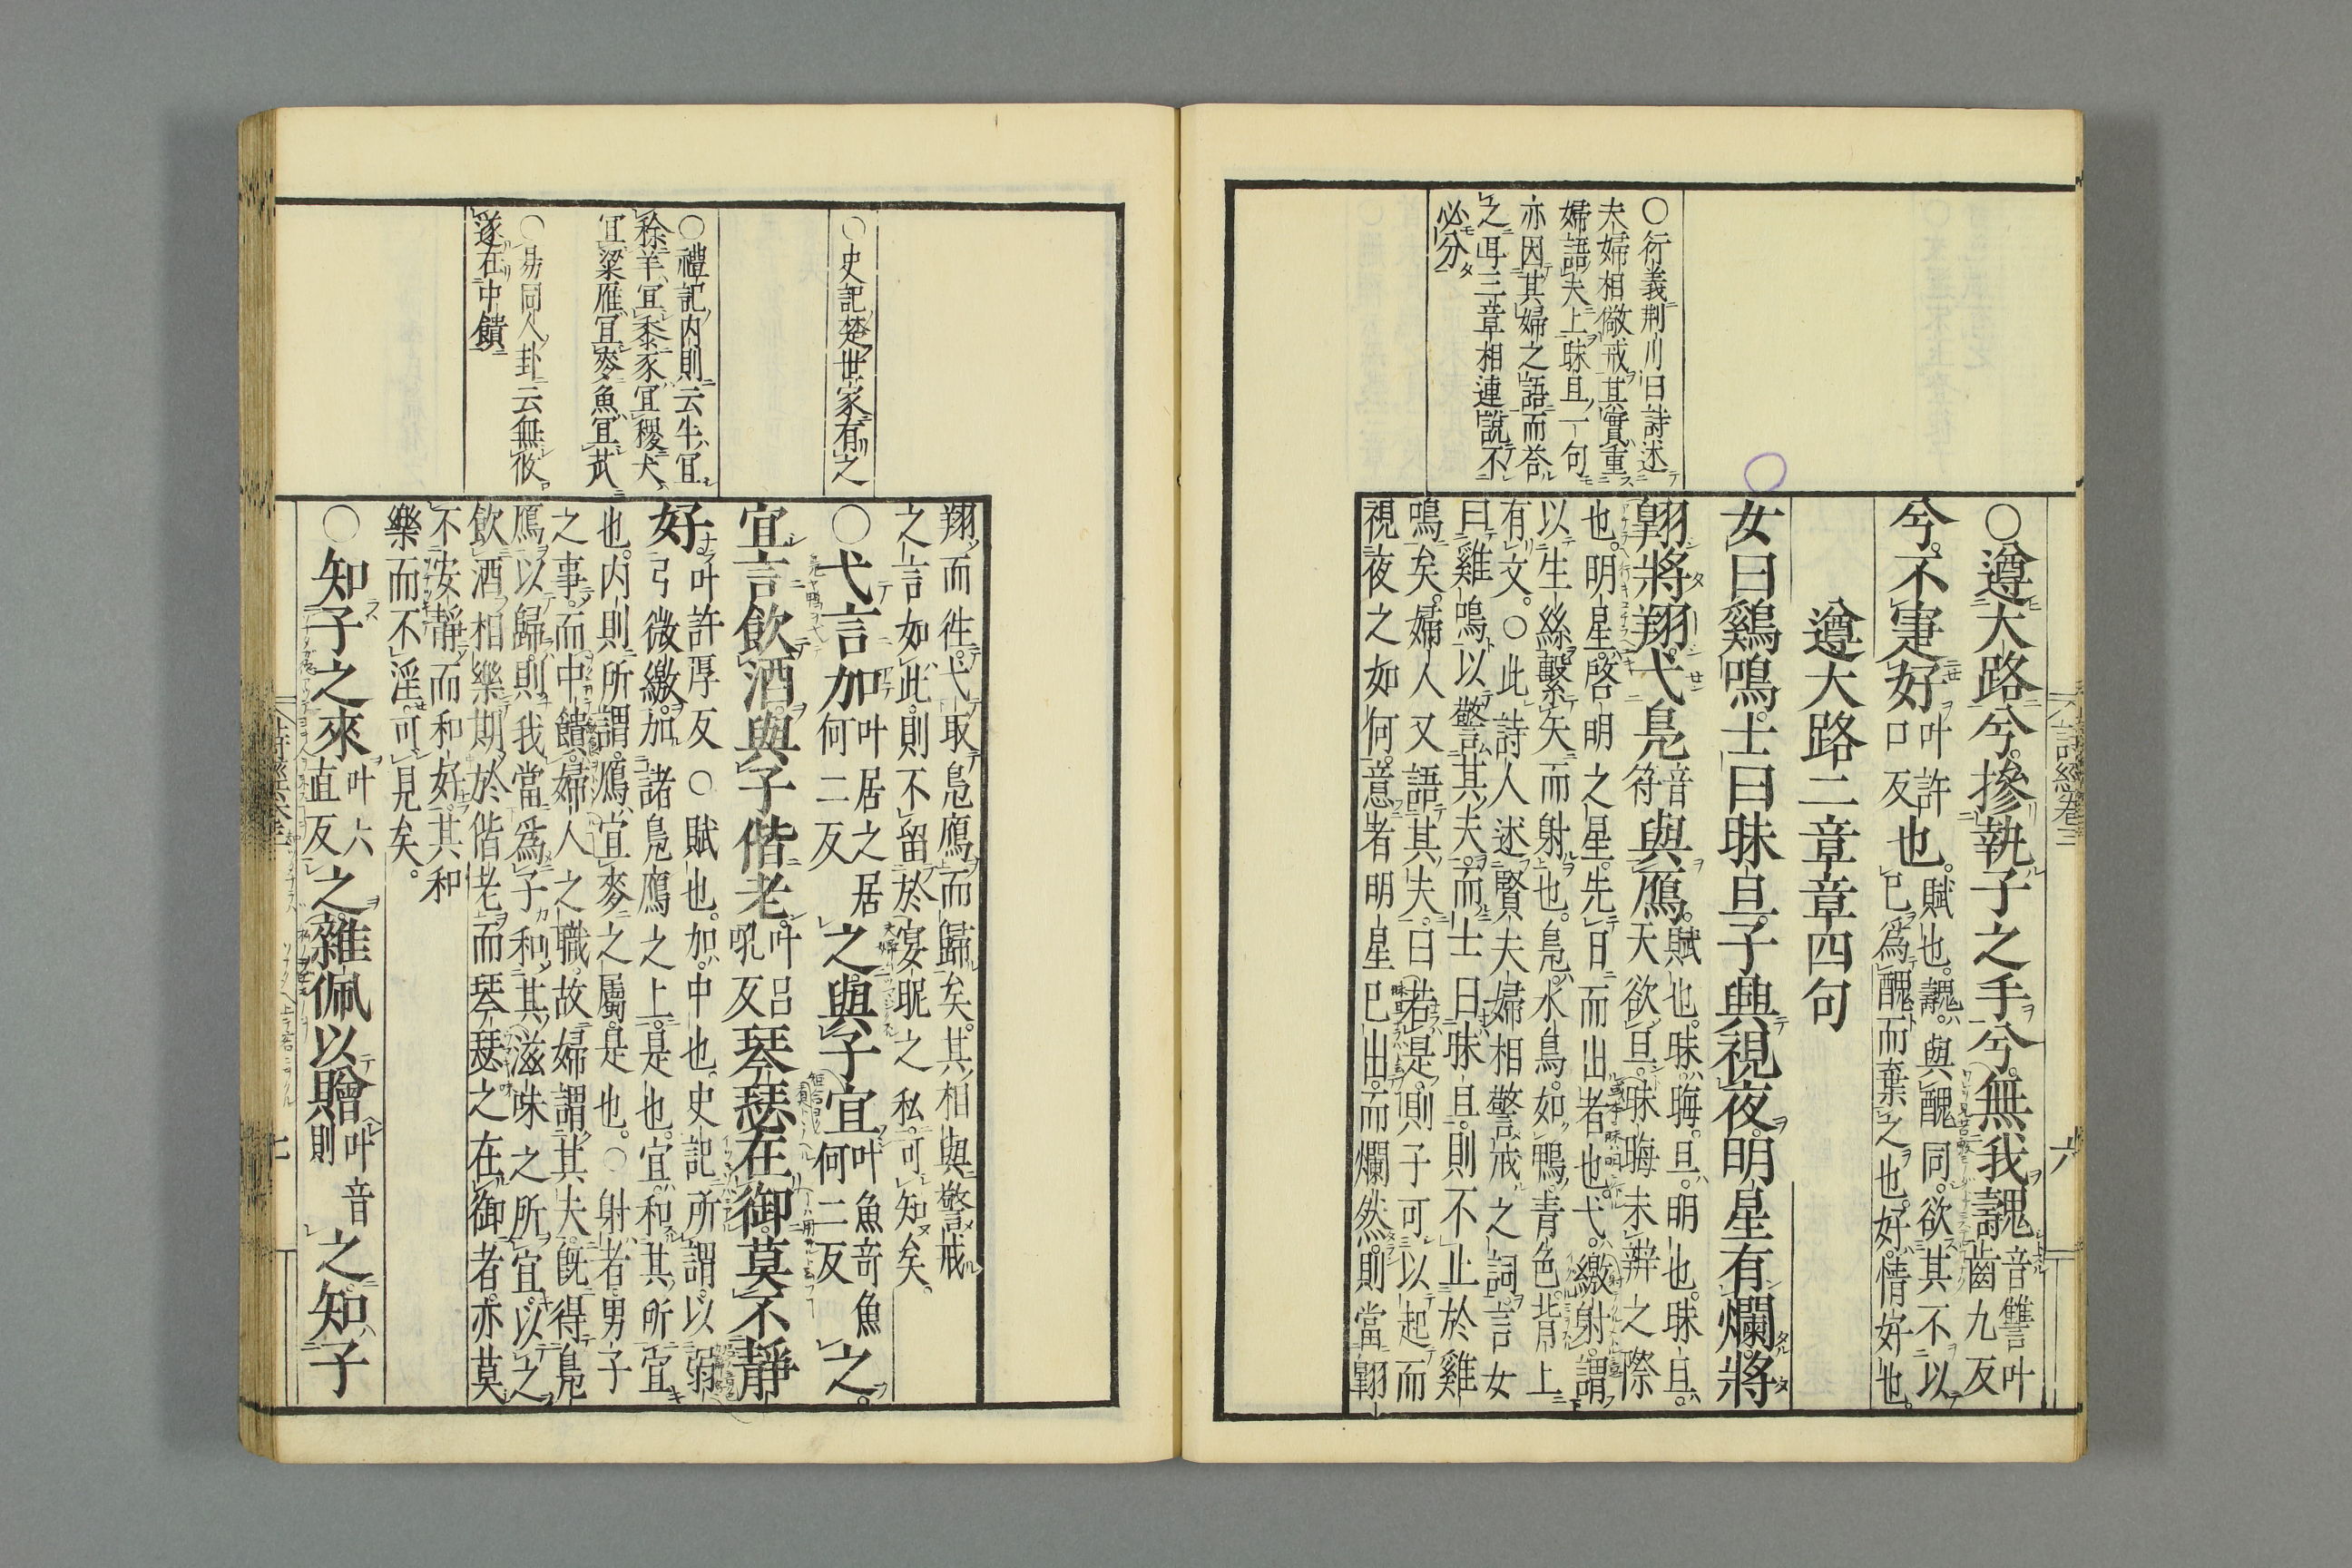 詩經卷三
六
○遵大路兮。摻執子之手兮。無我䜽音讐叶齒九反
兮。不寁好叶許口反也。賦也。䜽與醜同。欲其不以
已爲醜而棄之也。好情好也。
遵大路二章章四句
女曰鷄鳴。士曰昧旦。子興視夜。明星有爛。將
翺將翔。弋鳧音符與鴈。賦也。昧晦。旦明也。昧旦。
天欲旦。昧晦未辨之際
也。明星啓明之星。先日而出者也。弋。繳射。謂
以生絲繫矢而射也。鳧。水鳥。如鴨。青色。背上
有文。○此詩人述賢夫婦相警戒之詞。言女
曰雞鳴以警其夫。而士曰昧旦。則不止於雞
鳴矣。婦人又語其夫。曰若是。則子可以起而
視夜之如何。意者明星已出。而爛然。則當翺
○衍義荆川曰詩述
夫婦相儆戒其實重
婦語夫上昧旦一句
亦因其婦之語而答
之耳三章相連說不
必分
翔而徃。弋取鳧鴈而歸矣。其相與警戒
之言如此。則不留於宴昵之私可知矣。
○弋言加叶居之居何二反之。與子宜叶魚奇魚何二反之。
宜言飲酒。與子偕老。叶呂吼反琴瑟在御。莫不靜
好。叶許厚反○賦也。加。中也。史記所謂。以弱
弓微繳。加諸鳧鴈之上。是也。宜。和其所宜
也。内則所謂。鴈宜麥之屬。是也。○射者。男子
之事。而中饋。婦人之職。故婦謂其夫。旣得鳧
鴈以歸。則我當爲子和其滋味之所宜。以之
飲酒相樂。期於偕老。而琴瑟之在御者。亦莫
不安靜而和好。其和
樂而不淫。可見矣。
○知子之來叶六直反之。雜佩以贈叶音則之。知子
○史記楚世家有之
○禮記内則云牛宜
稌羊宜黍豕宜稷犬
宜粱雁宜麥魚宜苽
○易同人卦云無攸
遂在中饋